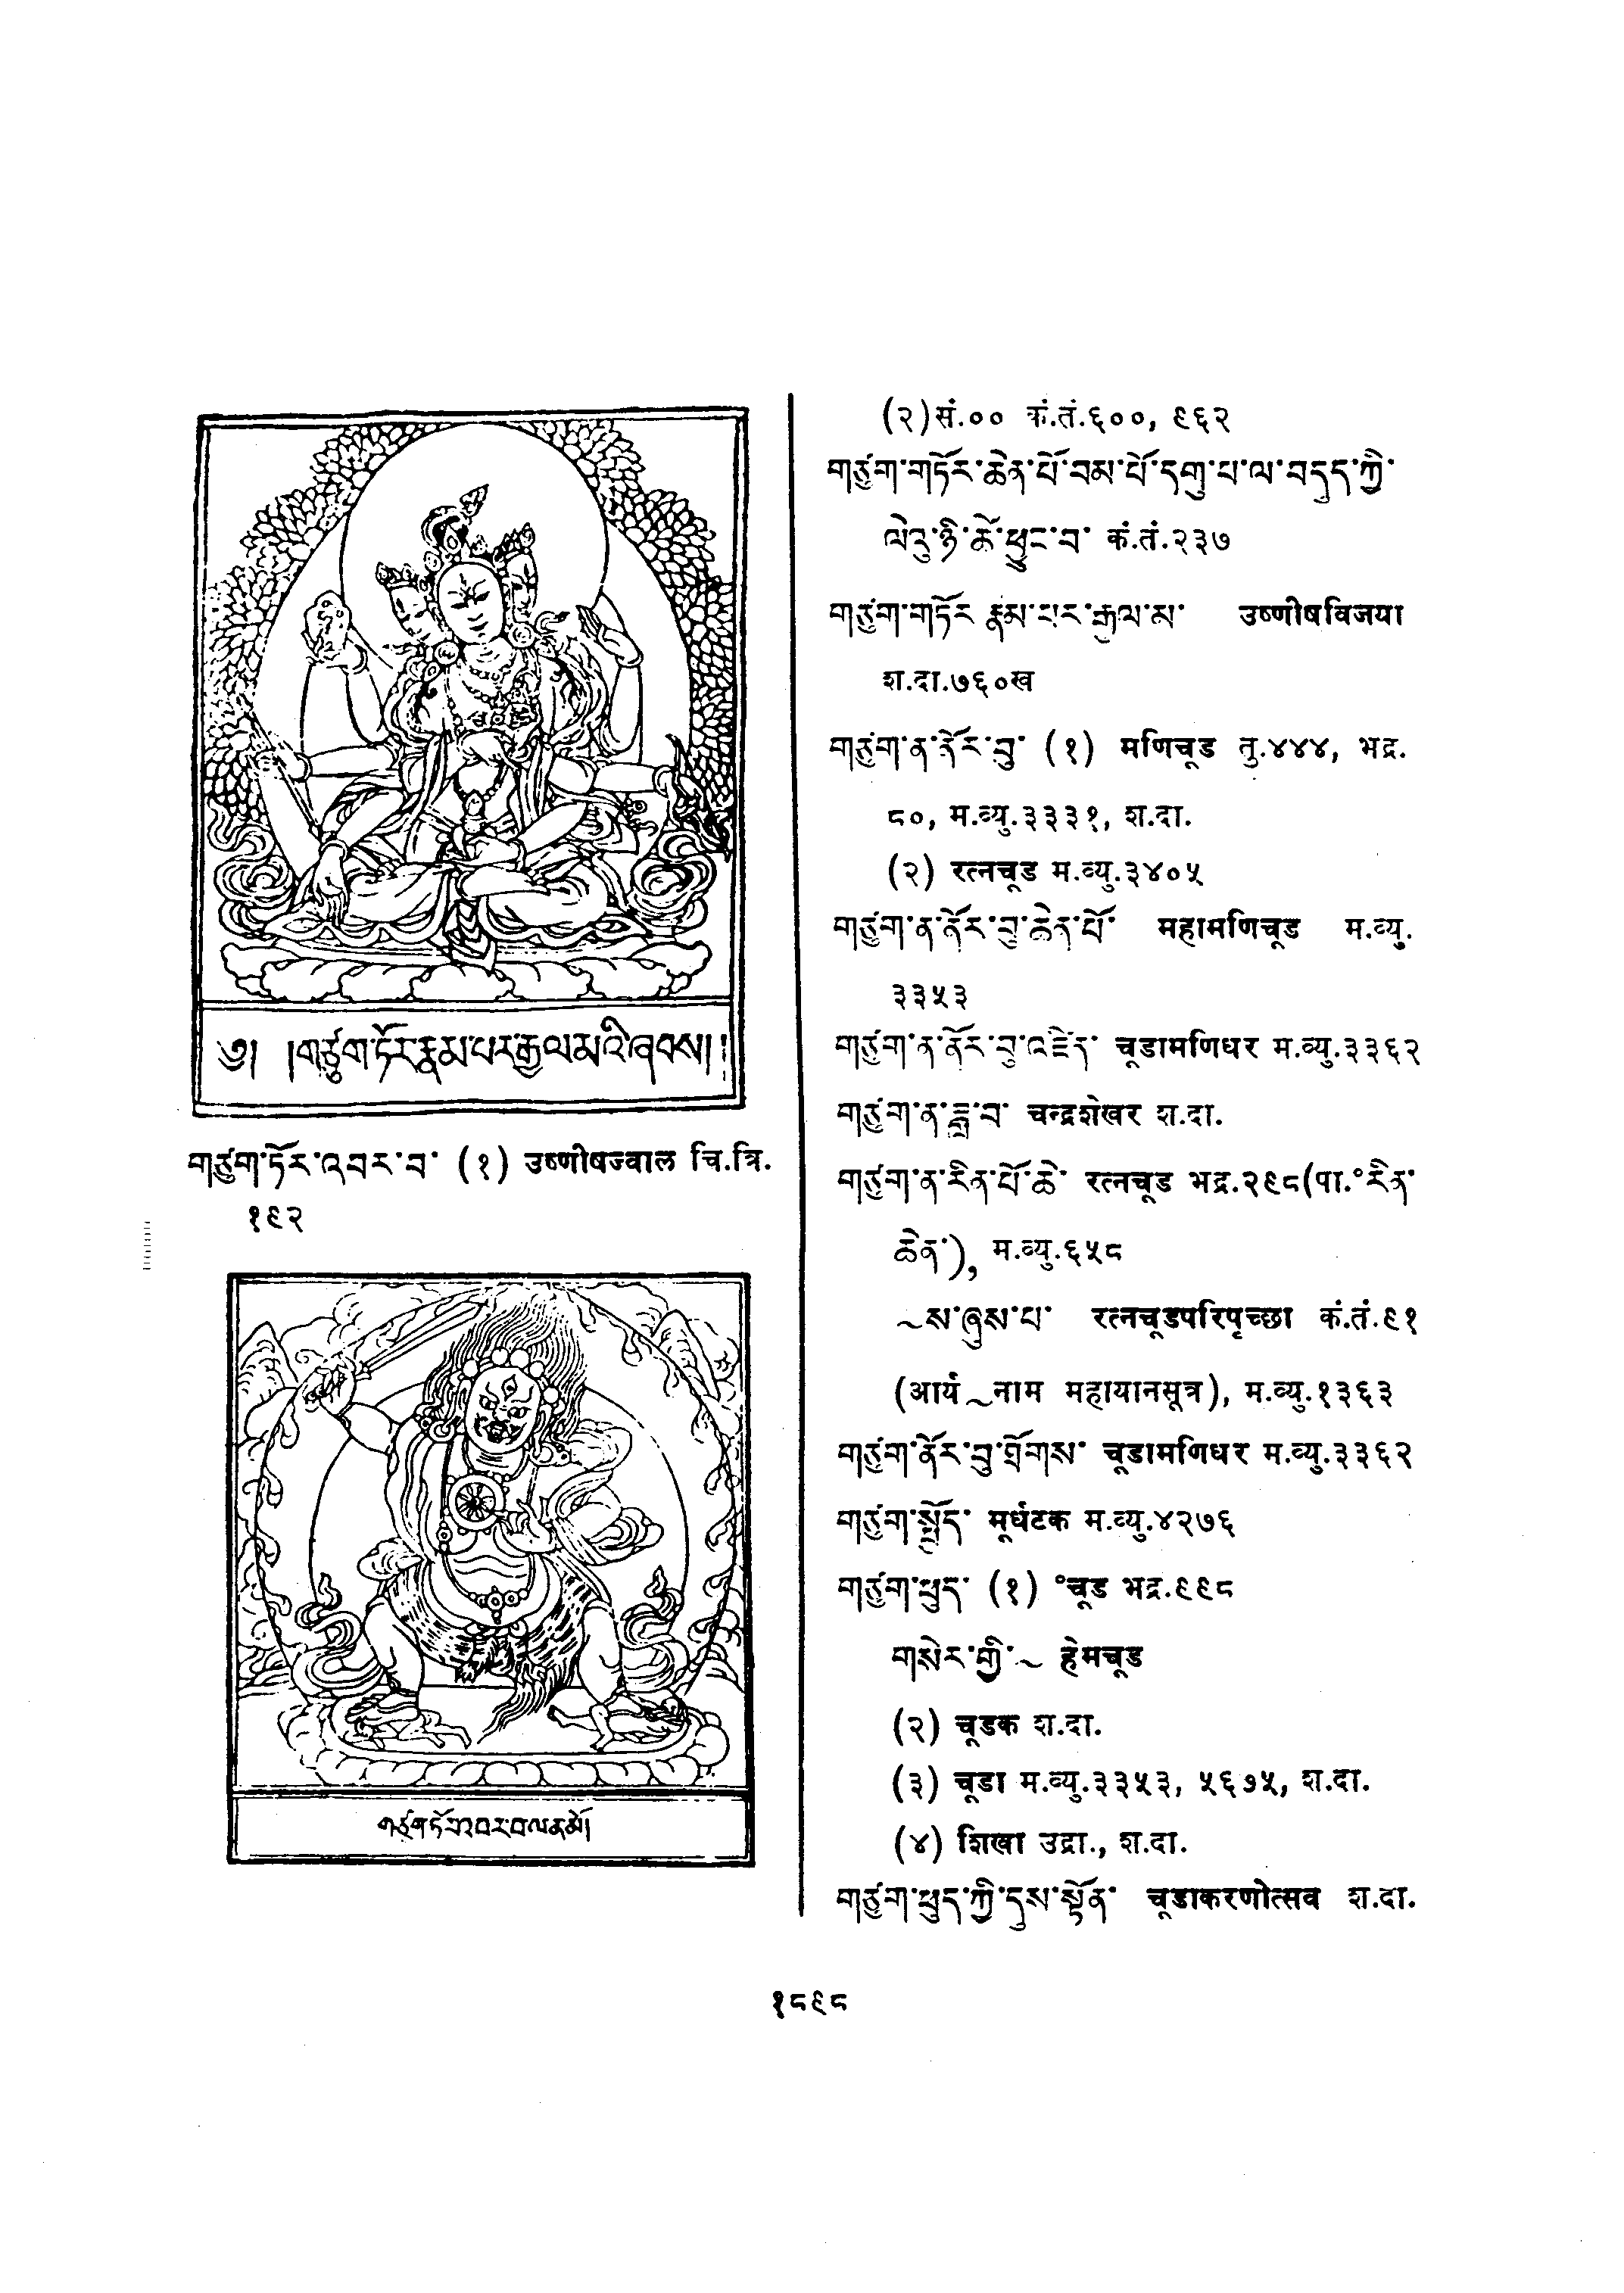 ༄། །གཙུག་ཏོར་རྣམ་པར་རྒྱལ་མའི་ཞབས།།
གཙུག་ཏོར་འབར་བ་ (१) उष्णीषज्वाल चि.त्रि.
१९२
གཙུག་ཏོར་འབར་བ་ལ་ན་མོ།
(२)सं.०० कं.तं.६००, ९६२
གཙུག་གཏོར་ཆེན་པོ་བམ་པོ་དགུ་པ་ལ་བདུད་ཀྱི་
ལེའུ་ཉི་ཚེ་ཕྱུང་བ་ कं.तं.२३७
གཙུག་གཏོར་རྣམ་པར་རྒྱལ་མ་ उष्णीषविजया
श.दा.७६०ख
གཙུག་ན་ནོར་བུ་ (१) मणिचूड तु.४४४, भद्र.
८०, म.व्यु.३३३१, श.दा.
(२) रत्नचूड म.व्यु.३४०५
གཙུག་ན་ནོར་བུ་ཆེན་པོ་ महामणिचूड म.व्यु.
३३५३
གཙུག་ན་ནོར་བུ་འཛིན་ चूडामणिधर म.व्यु.३३६२
གཙུག་ན་ཟླ་བ་ चन्द्रशेखर श.दा.
གཙུག་ན་རིན་པོ་ཆེ་ रत्नचूड भद्र.२९८(पा.°རིན་
ཆེན་), म.व्यु.६५८
~ས་ཞུས་པ་ रत्नचूडपरिपृच्छा कं.तं.९१
(आर्य ~नाम महायानसूत्र), म.व्यु.१३६३
གཙུག་ནོར་བུ་ཐོགས་ चूडामणिधर म.व्यु.३३६२
གཙུག་སྤྱོད་ मूर्धटक म.व्यु.४२७६
གཙུག་ཕུད་ (१) °चूड भद्र.९९८
གསེར་གྱི་~ हेमचूड
(२) चूडक श.दा.
(३) चूडा म.व्यु.३३५३, ५६७५, श.दा.
(४) शिखा उद्रा., श.दा.
གཙུག་ཕུད་ཀྱི་དུས་སྟོན་ चूडाकरणोत्सव श.दा.
१८९८